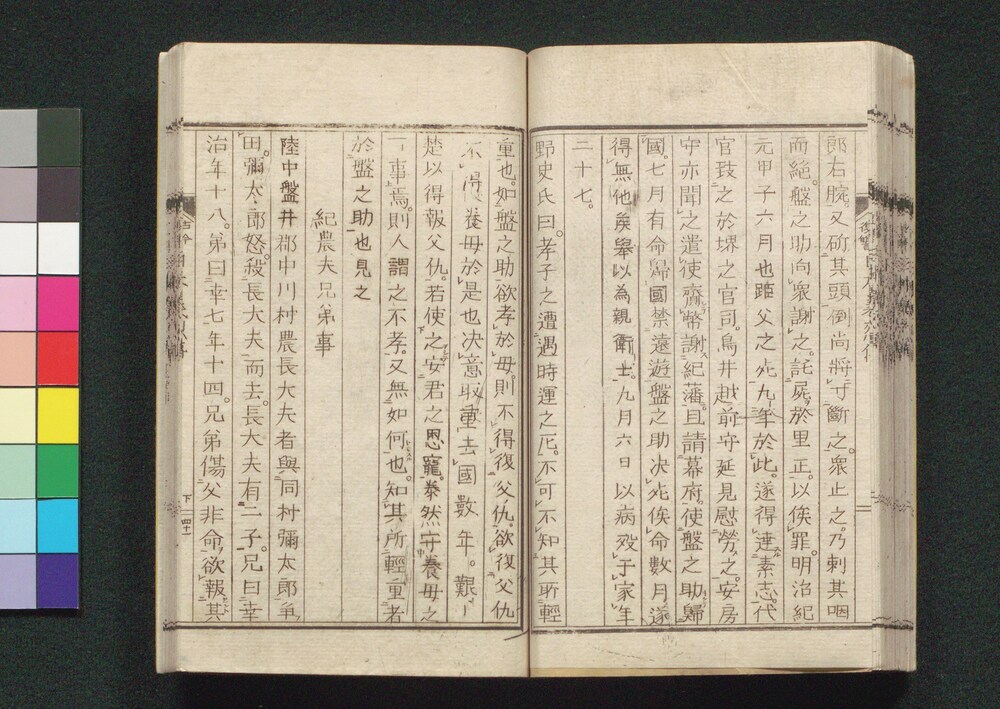 郎右腕。又斫其頭倒尚將寸斷之。衆止之。乃刺其咽
而絕。盤之助向衆謝之。託屍於里正。以俟罪。明治紀
元甲子六月也距父之死九年於此。遂得達素志。代
官致之於堺之官司。鳥井越前守延見慰勞之。安房
守亦聞之遣使齎幣謝紀藩且請幕府。使盤之助歸
國。七月有命歸國禁遠遊盤之助决死俟命數月遂
得無他矣擧以為親衛士。九月六日以病歿于家年
三十七。
野史氏曰。孝子之遭遇時運之厄。不可不知其所輕
重也。如盤之助欲孝於母。則不得復父仇。欲復父仇
不得養母於是也决意取重去國數年。艱
楚以得報父仇。若使之安君之恩寵。泰然守養母之
一事焉。則人謂之不孝。又無如何也。知其所輕重者
於盤之助也見之
紀農夫兄弟事
陸中盤井郡中川村農長大夫者與同村彌太郎爭
田。彌太郎怒。殺長大夫而去。長大夫有二子。兄曰幸
治年十八。弟曰幸七年十四。兄弟傷父非命。欲報其
下 四十